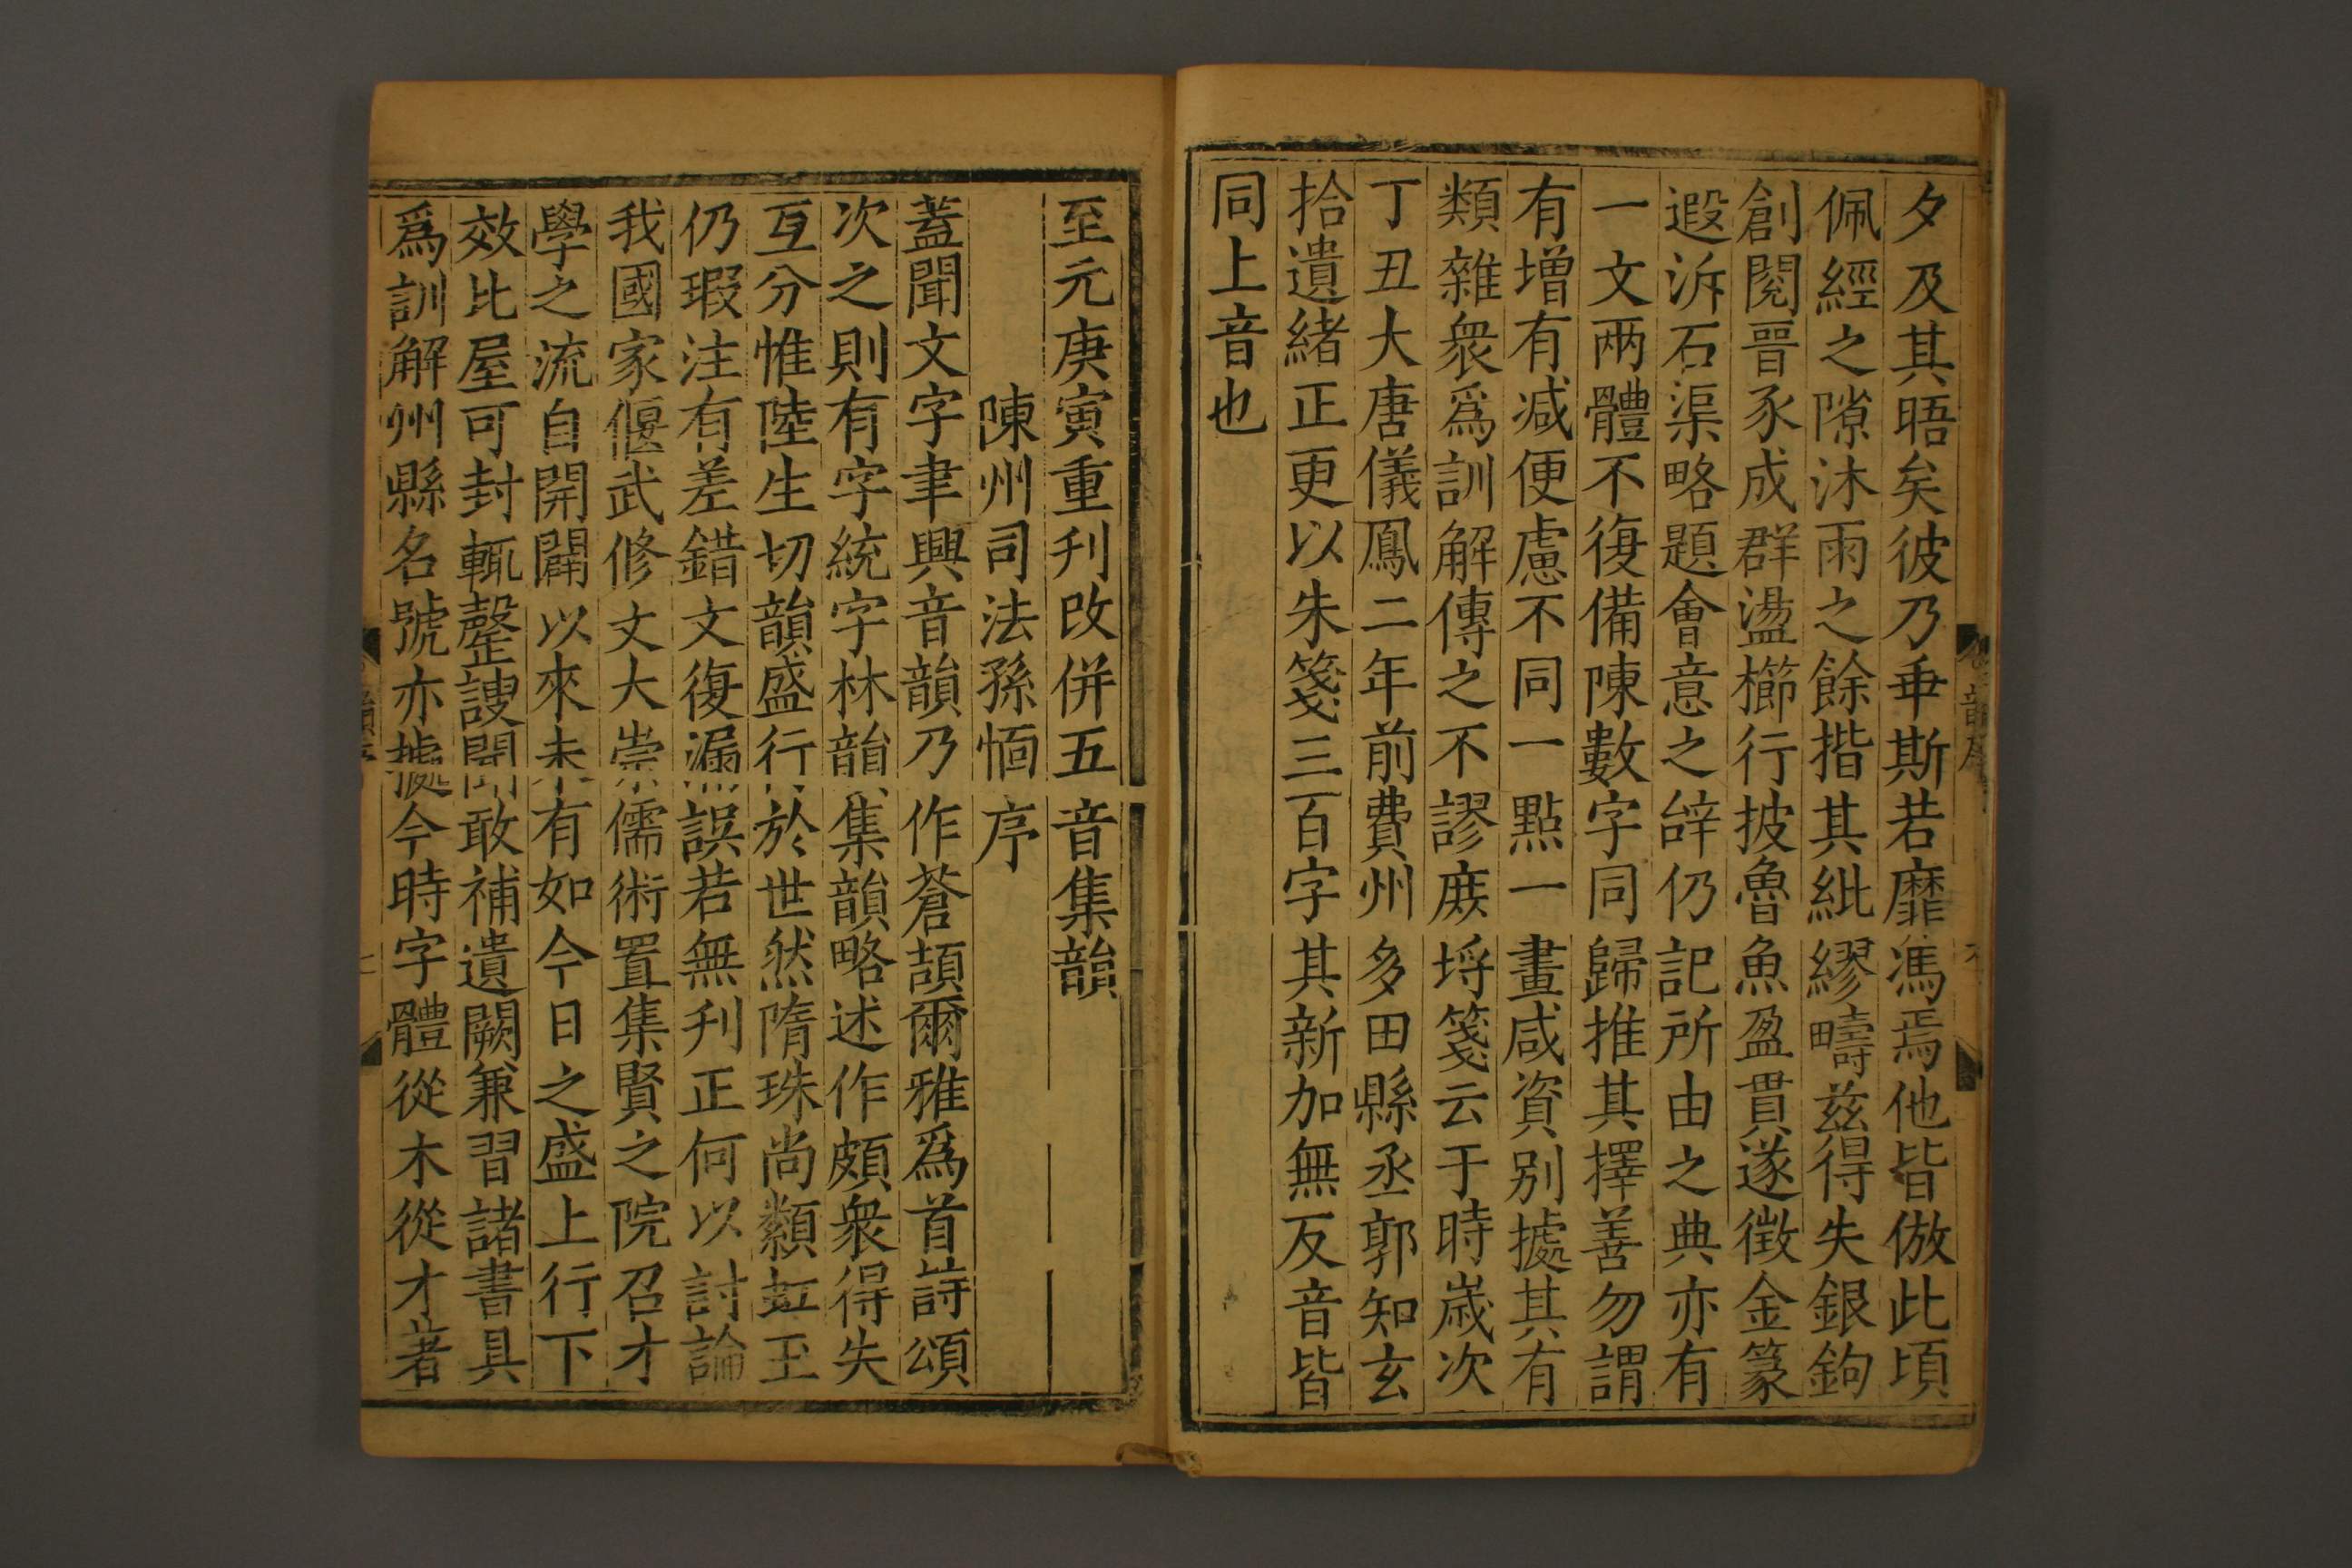 夕及其晤矣彼乃乖斯若靡馮焉他皆倣此頃
佩經之隙沐雨之餘揩其紕繆疇兹得失銀鉤
創閱晉豕成群盪櫛行披魯魚盈貫遂徵金篆
遐泝石渠略題會意之辝仍記所由之典亦有
一文兩體不復備陳數字同歸推其擇善勿謂
有增有减便慮不同一點一畫咸資别據其有
類雜衆爲訓解傳之不謬庻埒箋云于時歲次
丁丑大唐儀鳳二年前費州多田縣丞郭知玄
拾遺緒正更以朱箋三百字其新加無反音皆
同上音也
至元庚寅重刋改併五音集韻
陳州司法孫愐序
蓋聞文字聿興音韻乃作蒼頡爾雅爲首詩頌
次之則有字統字林韻集韻略述作頗衆得失
互分惟陸生切韻盛行於世然隋珠尚纇虹玉
仍瑕注有差錯文復漏誤若無刋正何以討論
我國家偃武修文大崇儒術置集賢之院召才
學之流自開闢以來未有如今日之盛上行下
效比屋可封輒罄謏聞敢補遺闕兼習諸書具
爲訓解州縣名號亦據今時字體從木從才著